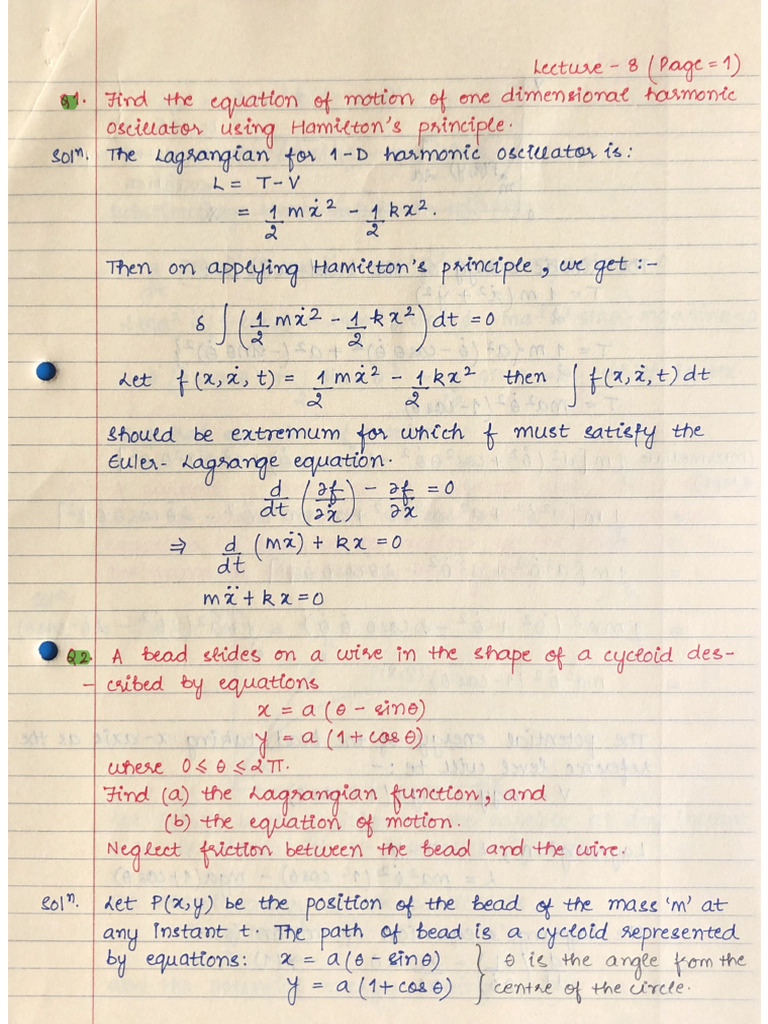 Lecture - 8 (Page = 1)
Q1. Find the equation of motion of one dimensional harmonic
oscillator using Hamilton's principle.
Solⁿ. The Lagrangian for 1-D harmonic oscillator is:
L = T-V
= 1/2 mẋ² - 1/2 kx².
Then on applying Hamilton's principle, we get :-
δ ∫ (1/2 mẋ² - 1/2 kx²) dt = 0
Let f(x, ẋ, t) = 1/2 mẋ² - 1/2 kx² then ∫ f(x, ẋ, t) dt
should be extremum for which f must satisfy the
Euler- Lagrange equation.
d/dt (∂f/∂ẋ) - ∂f/∂x = 0
⇒ d/dt (mẋ) + kx = 0
mẍ + kx = 0
Q2. A bead slides on a wire in the shape of a cycloid des-
- cribed by equations
x = a (θ - sinθ)
y = a (1 + cosθ)
where 0 ≤ θ ≤ 2π.
Find (a) the Lagrangian function, and
(b) the equation of motion.
Neglect friction between the bead and the wire.
Solⁿ. Let P(x,y) be the position of the bead of the mass 'm' at
any instant t. The path of bead is a cycloid represented
by equations: x = a(θ - sinθ) } θ is the angle from the
y = a(1 + cosθ) } centre of the circle.